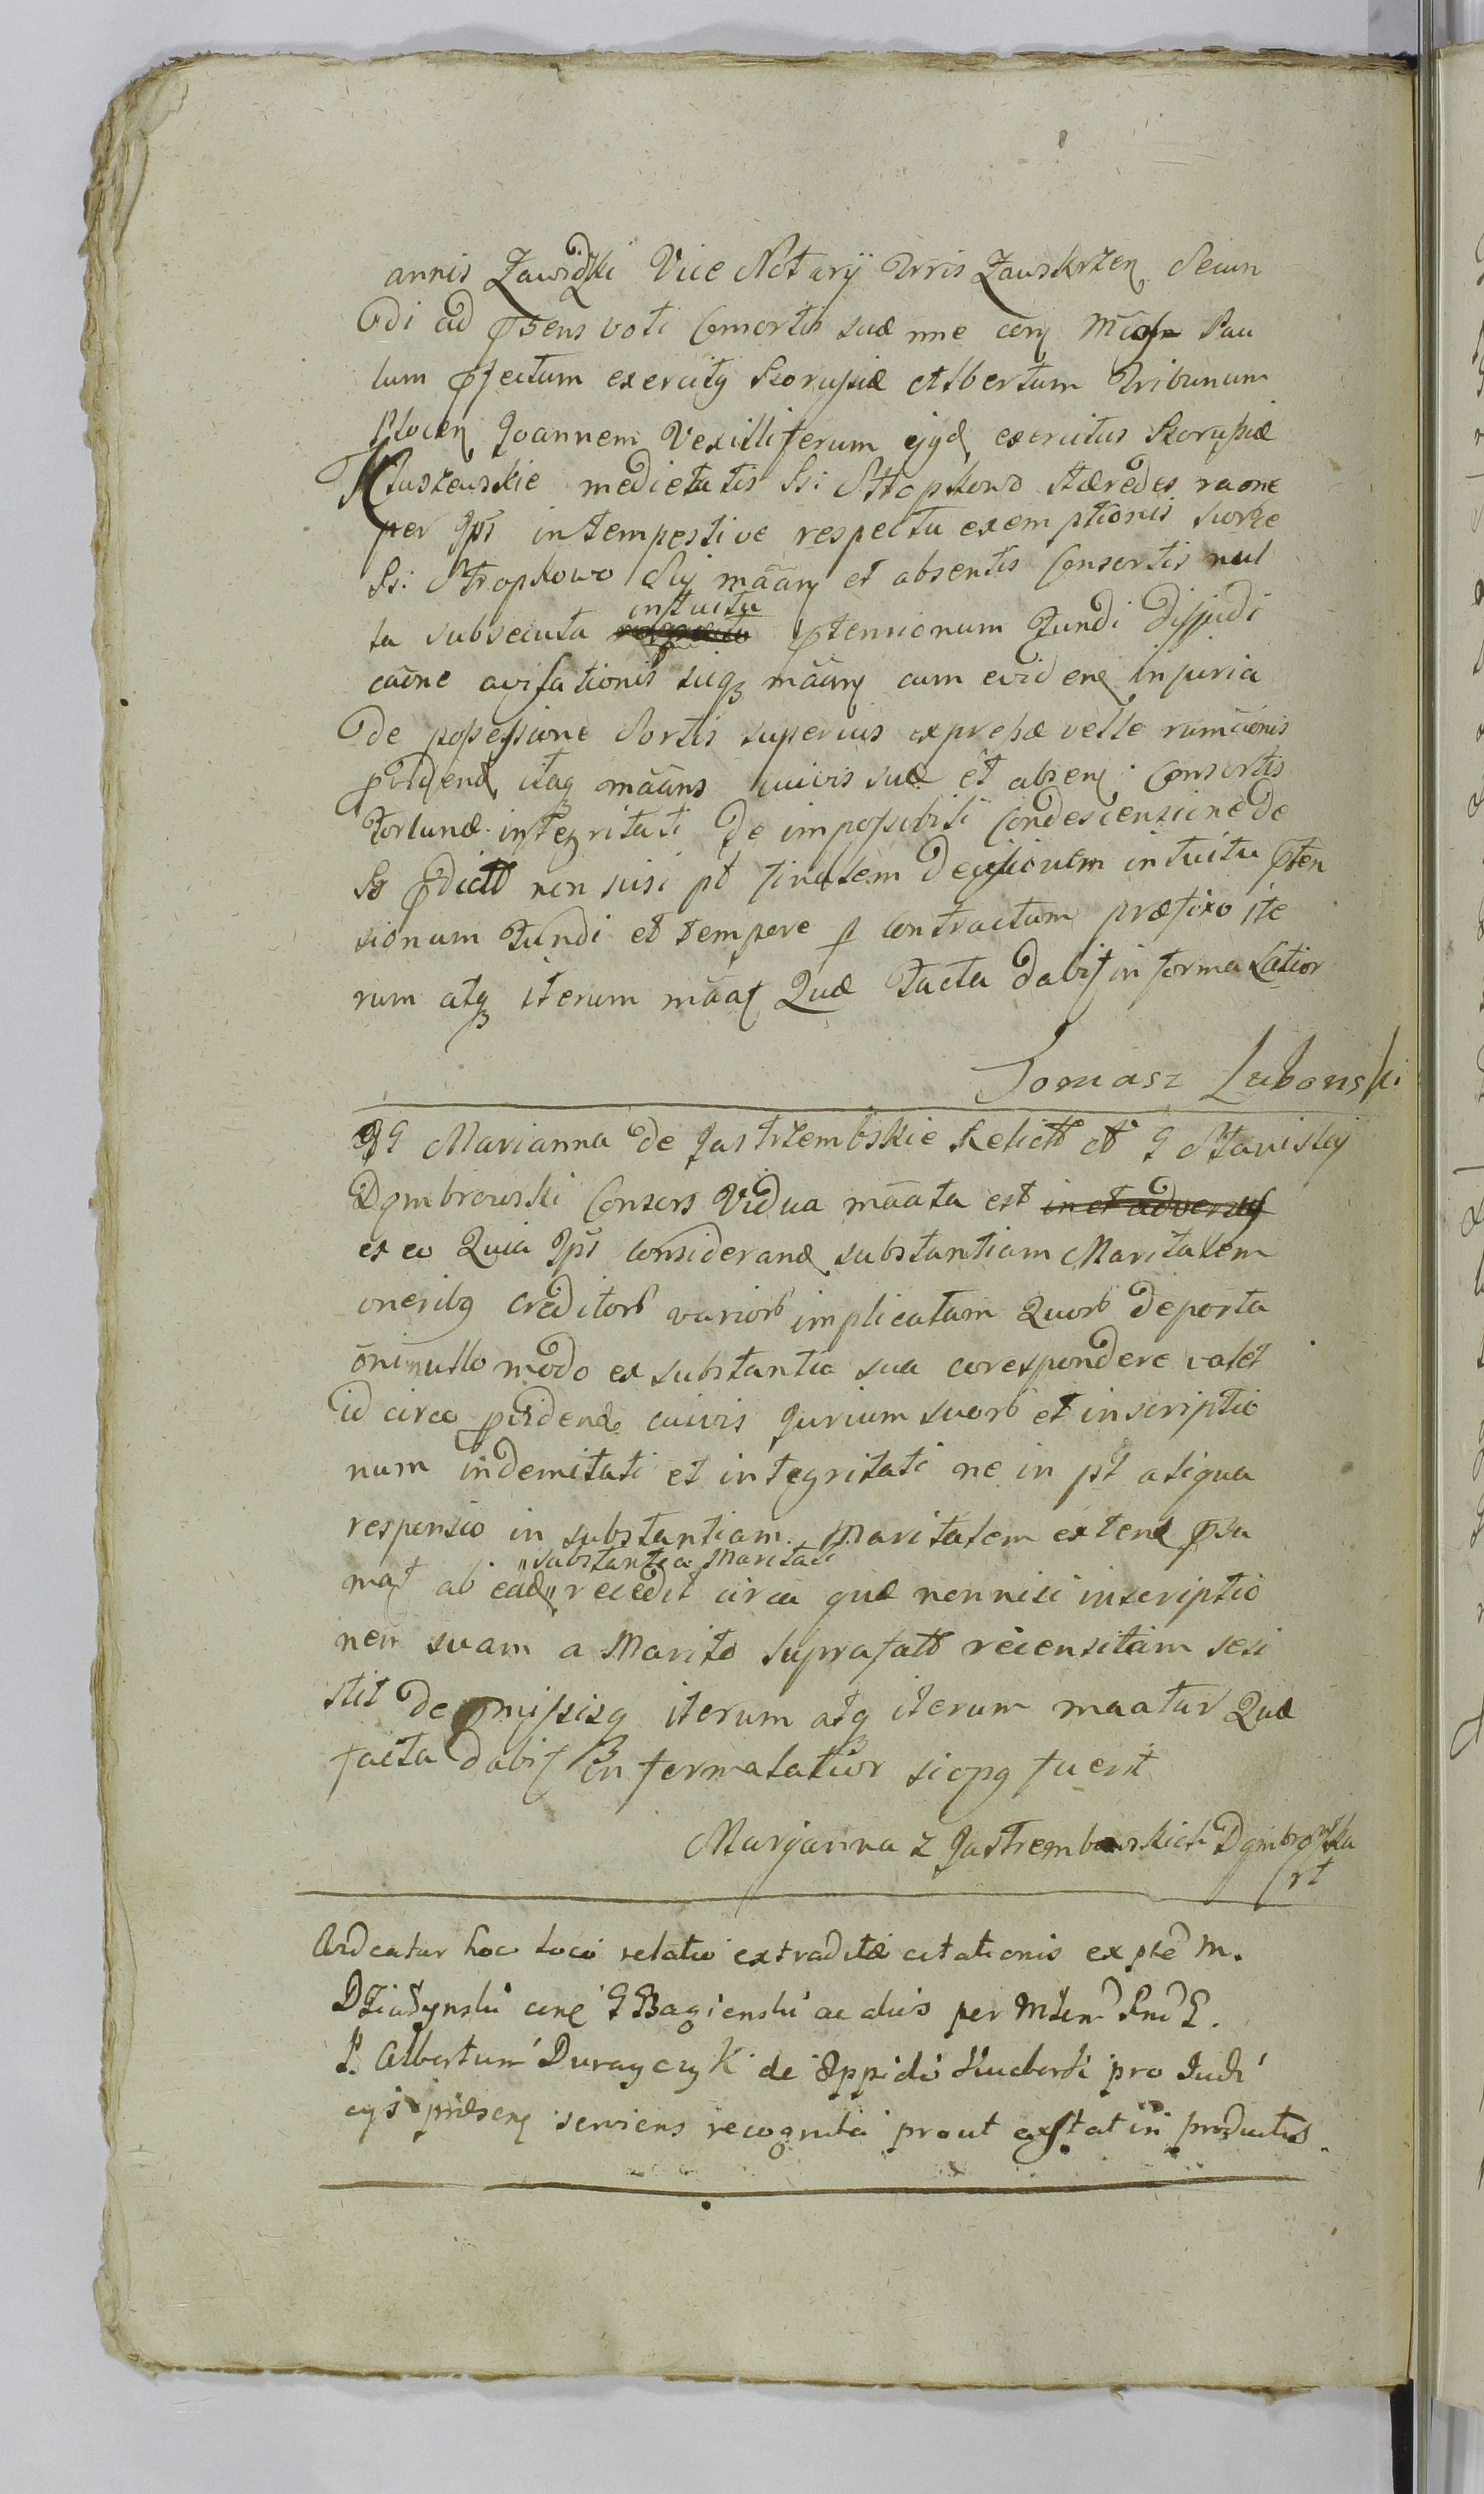 annis Zawidzki Vice Notarÿ Trris Zawskrzen Secun
di ad psens voti Consortis suæ nne con Paulum
lum pfectum exercitq Korupiæ Albertum Tribunum
Plocen Joannem Vexilliferum ejqd exercitus Korupiæ
Kluszewskie medietatis Ssi: Stropkowo Hæredes raone
per Jps intempestive respectu exemptionis Sworze
Ssi: Stropkowo Sui mããn et absentis Consortis nul
la subsecuta intuitu ptensionum Fundi Dijudi
caone avisationis suiq mããn cum eviden injuria
De possessione Sortis superius expressæ velle rumaonis
pvidend itaq mããns cuivis suæ et absen Consortis
Fortunæ integritati De impossibili Condescensione de
Ss pdictt non nisi pt finalem Decisionem intuitu pten
sionum Fundi et tempore p Contractum præfixo ite
rum atq iterum mãat Quæ Facta dabit in forma Latior
Tomasz Lubonski
G Marianna de Jastrzembskie Relictt ct G Stanislaj
Dombrowski Consors Vidua mãata est in et adversq
ex eo Quia Jps considerand substantiam Maritalem
oneribq creditorb variorb implicatam Quorb deporta
oni nullo modo ex substantia sua corespondere valet
id circo pvidendo cuivis Jurium suorb et inscriptio
num indemitati et integritati ne in pt aliqua
responsio in substantiam Maritalem extend psu
mat ab eadₑ "substantia Maritali recedit circa quæ nonnisi inscriptio
nem suam a Marito Suprafatt recensitam sesi
stit de pmissisq iterum atq iterum maatur Quæ
facta dabit in forma latior si opq fuerit
Maryanna z Jastrembowskich Dombrowska
rt
Ardeatur hoc loco relatio extraditæ citationis ex pte M.
Działynski cone G Bagienski ac aliis per Mtem
P. Albertum Durayczyk de Oppido Kuczborki pro Judi
cys præsen serviens recognita prout exstat in productis.